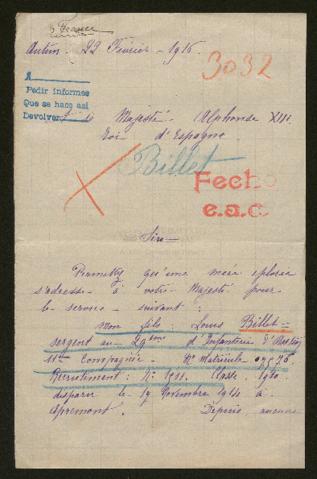 France
Autun. 22 Février - 1916.
3032
A
Pedir informes
Que se haga así
Devolver
Sa Majesté. Alphonse XIII.
Roi d'Espagne
Billet
Fecho
e.a.c
Sire
Permettez qu'une mère
s'adresse à votre Majesté pour
le service suivant :
mon fils : Louis Billet =
sergent au 29ème d'Infanterie d'
Compagnie - N° Matricule
Recrutement : N° Classe 1910.
disparu le 17 Novembre 1914 à
Apremont. Depuis aucune